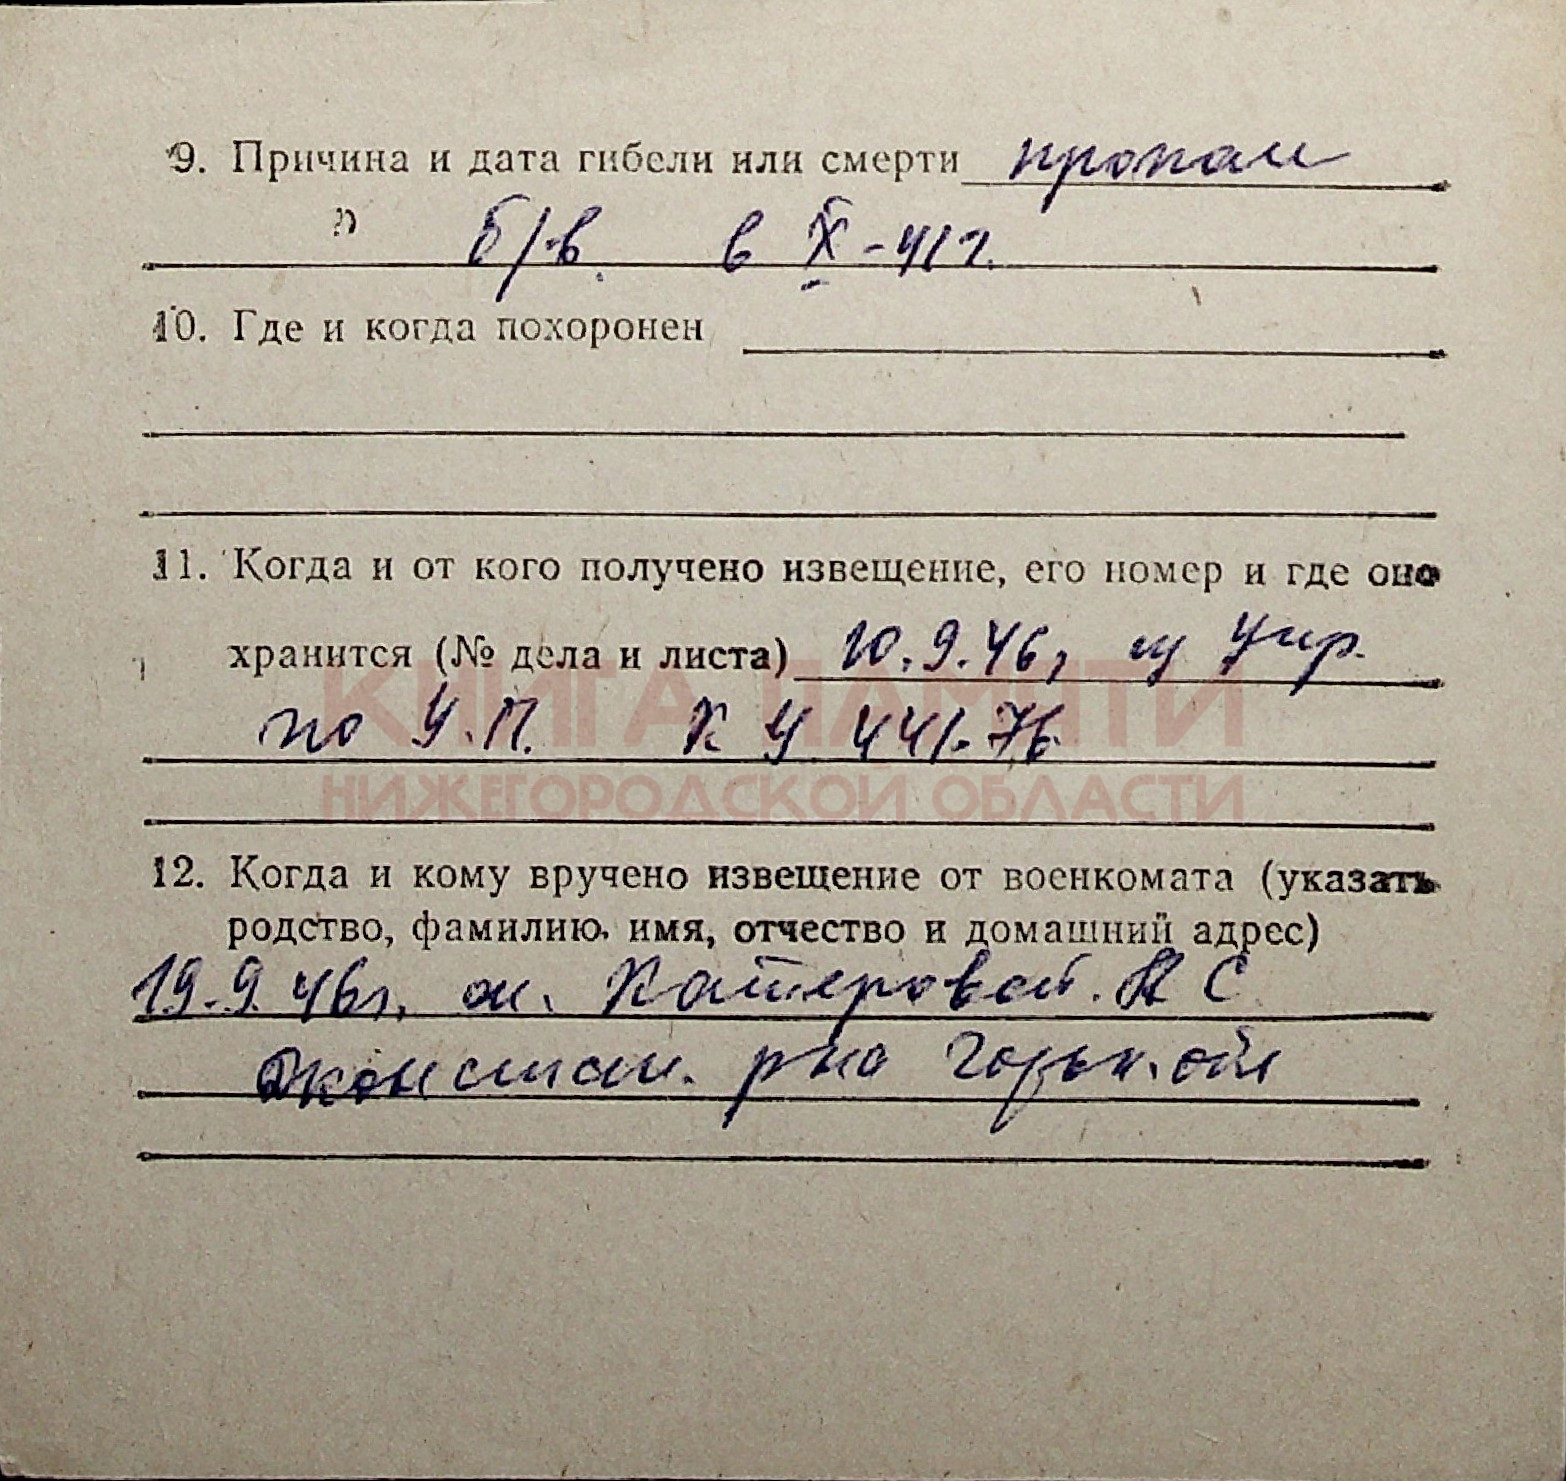 9. Причина и дата гибели или смерти пропал
б/в в X-41г.
10. Где и когда похоронен
11. Когда и от кого получено извещение, его номер и где оно
хранится (№ дела и листа) 10.9.46, Упр.
по У.П. К У 441.76
КНИГА ПАМЯТИ
НИЖЕГОРОДСКОЙ ОБЛАСТИ
12. Когда и кому вручено извещение от военкомата (указать
родство, фамилию, имя, отчество и домашний адрес)
19.9.46г. ж. С
р-на Горьк. обл